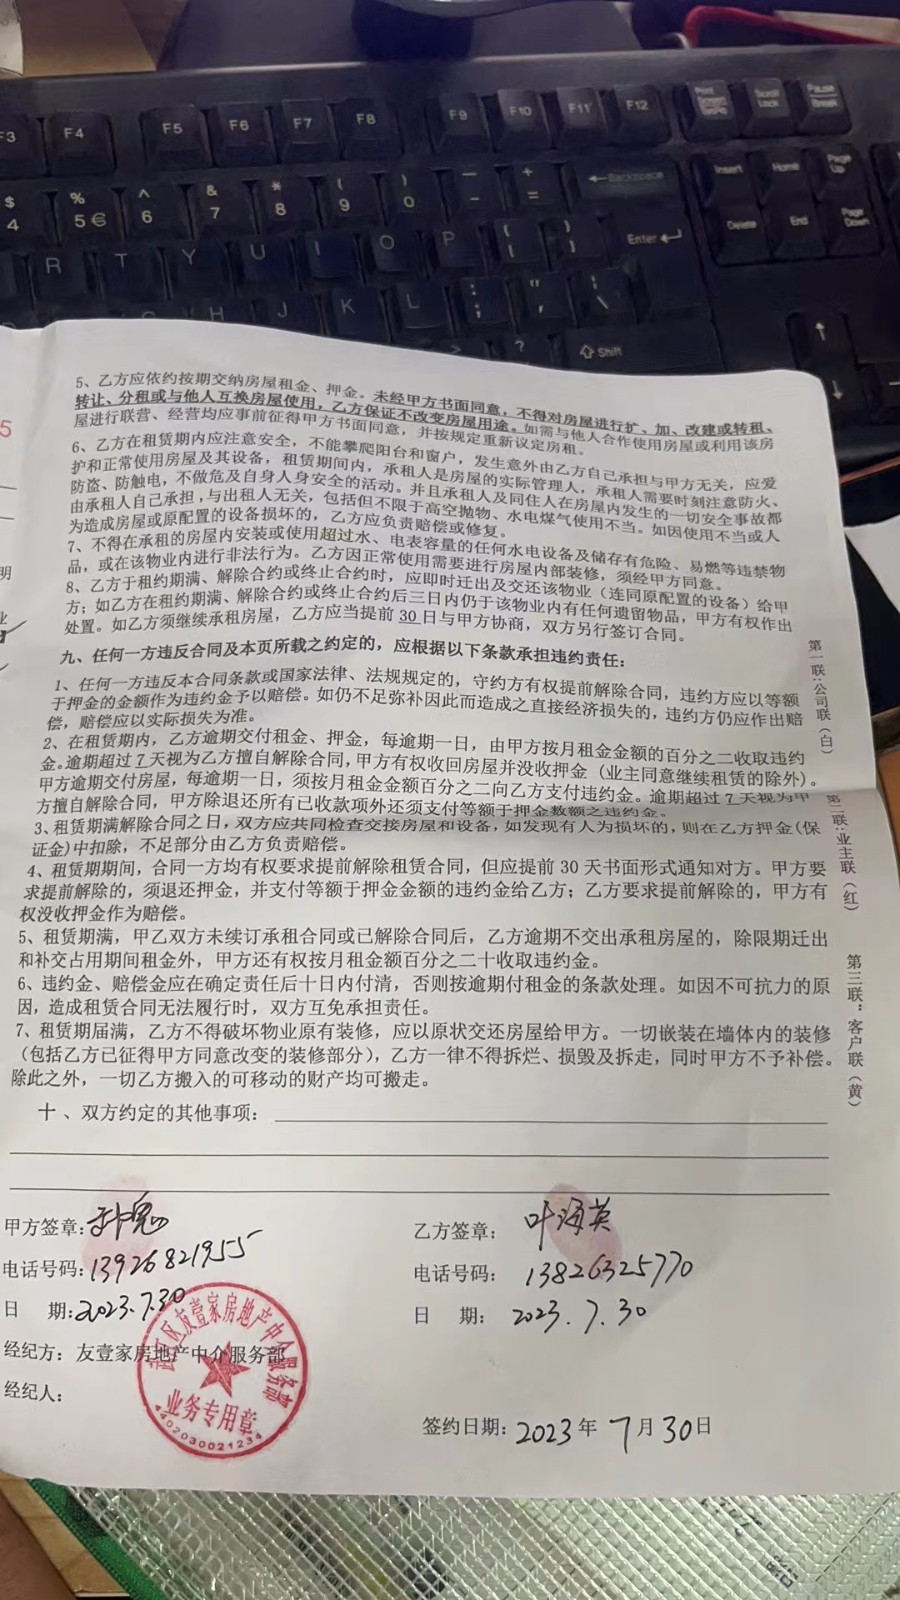 F3 F4 F5 F6 F7 F8 F9 F10 F11 F12 Print Screen SysRq Scroll Lock Pause Break
$ 4 % 5 € ^ 6 & 7 * 8 ( 9 ) 0 — - + = ←Backspace Insert Home Page Up
R T Y U I O P { [ } ] Enter Delete End Page Down
G H J K L : ; " ' | \
> ? Shift ↑
5、乙方应依约按期交纳房屋租金、押金。未经甲方书面同意，不得对房屋进行扩、加、改建或转租、
转让、分租或与他人互换房屋使用，乙方保证不改变房屋用途。如需与他人合作使用房屋或利用该房
屋进行联营、经营均应事前征得甲方书面同意，并按规定重新议定房租。
6、乙方在租赁期内应注意安全，不能攀爬阳台和窗户，发生意外由乙方自己承担与甲方无关，应爱
护和正常使用房屋及其设备，租赁期间内，承租人是房屋的实际管理人，承租人需要时刻注意防火、
防盗、防触电，不做危及自身人身安全的活动。并且承租人及同住人在房屋内发生的一切安全事故都
由承租人自己承担，与出租人无关，包括但不限于高空抛物、水电煤气使用不当。如因使用不当或人
为造成房屋或原配置的设备损坏的，乙方应负责赔偿或修复。
7、不得在承租的房屋内安装或使用超过水、电表容量的任何水电设备及储存有危险、易燃等违禁物
品，或在该物业内进行非法行为。乙方因正常使用需要进行房屋内部装修，须经甲方同意。
8、乙方于租约期满、解除合约或终止合约时，应即时迁出及交还该物业（连同原配置的设备）给甲
方；如乙方在租约期满、解除合约或终止合约后三日内仍于该物业内有任何遗留物品，甲方有权作出
处置。如乙方须继续承租房屋，乙方应当提前30日与甲方协商，双方另行签订合同。
九、任何一方违反合同及本页所载之约定的，应根据以下条款承担违约责任：
1、任何一方违反本合同条款或国家法律、法规规定的，守约方有权提前解除合同，违约方应以等额
于押金的金额作为违约金予以赔偿。如仍不足弥补因此而造成之直接经济损失的，违约方仍应作出赔
偿，赔偿应以实际损失为准。
2、在租赁期内，乙方逾期交付租金、押金，每逾期一日，由甲方按月租金金额的百分之二收取违约
金。逾期超过7天视为乙方擅自解除合同，甲方有权收回房屋并没收押金（业主同意继续租赁的除外）。
甲方逾期交付房屋，每逾期一日，须按月租金金额百分之二向乙方支付违约金。逾期超过7天视为甲
方擅自解除合同，甲方除退还所有已收款项外还须支付等额于押金数额之违约金。
3、租赁期满解除合同之日，双方应共同检查交接房屋和设备，如发现有人为损坏的，则在乙方押金(保
证金)中扣除，不足部分由乙方负责赔偿。
4、租赁期期间，合同一方均有权要求提前解除租赁合同，但应提前30天书面形式通知对方。甲方要
求提前解除的，须退还押金，并支付等额于押金金额的违约金给乙方；乙方要求提前解除的，甲方有
权没收押金作为赔偿。
5、租赁期满，甲乙双方未续订承租合同或已解除合同后，乙方逾期不交出承租房屋的，除限期迁出
和补交占用期间租金外，甲方还有权按月租金额百分之二十收取违约金。
6、违约金、赔偿金应在确定责任后十日内付清，否则按逾期付租金的条款处理。如因不可抗力的原
因，造成租赁合同无法履行时，双方互免承担责任。
7、租赁期届满，乙方不得破坏物业原有装修，应以原状交还房屋给甲方。一切嵌装在墙体内的装修
（包括乙方已征得甲方同意改变的装修部分），乙方一律不得拆烂、损毁及拆走，同时甲方不予补偿。
除此之外，一切乙方搬入的可移动的财产均可搬走。
十、双方约定的其他事项：
第一联：公司联（白）
第二联：业主联（红）
第三联：客户联（黄）
甲方签章：
乙方签章：叶海英
电话号码：13926821955
电话号码：13826325770
日 期：2023.7.30
日 期：2023.7.30
经纪方：友壹家房地产中介服务部
经纪人：
区友壹家房地产中介服务部
业务专用章
4402030021234
签约日期：2023年7月30日
5
明
业